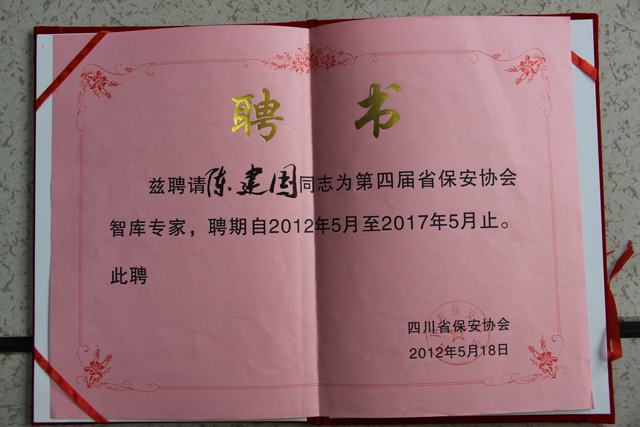 聘书
兹聘请陈建国同志为第四届省保安协会
智库专家，聘期自2012年5月至2017年5月止。
此聘
四川省保安协会
2012年5月18日